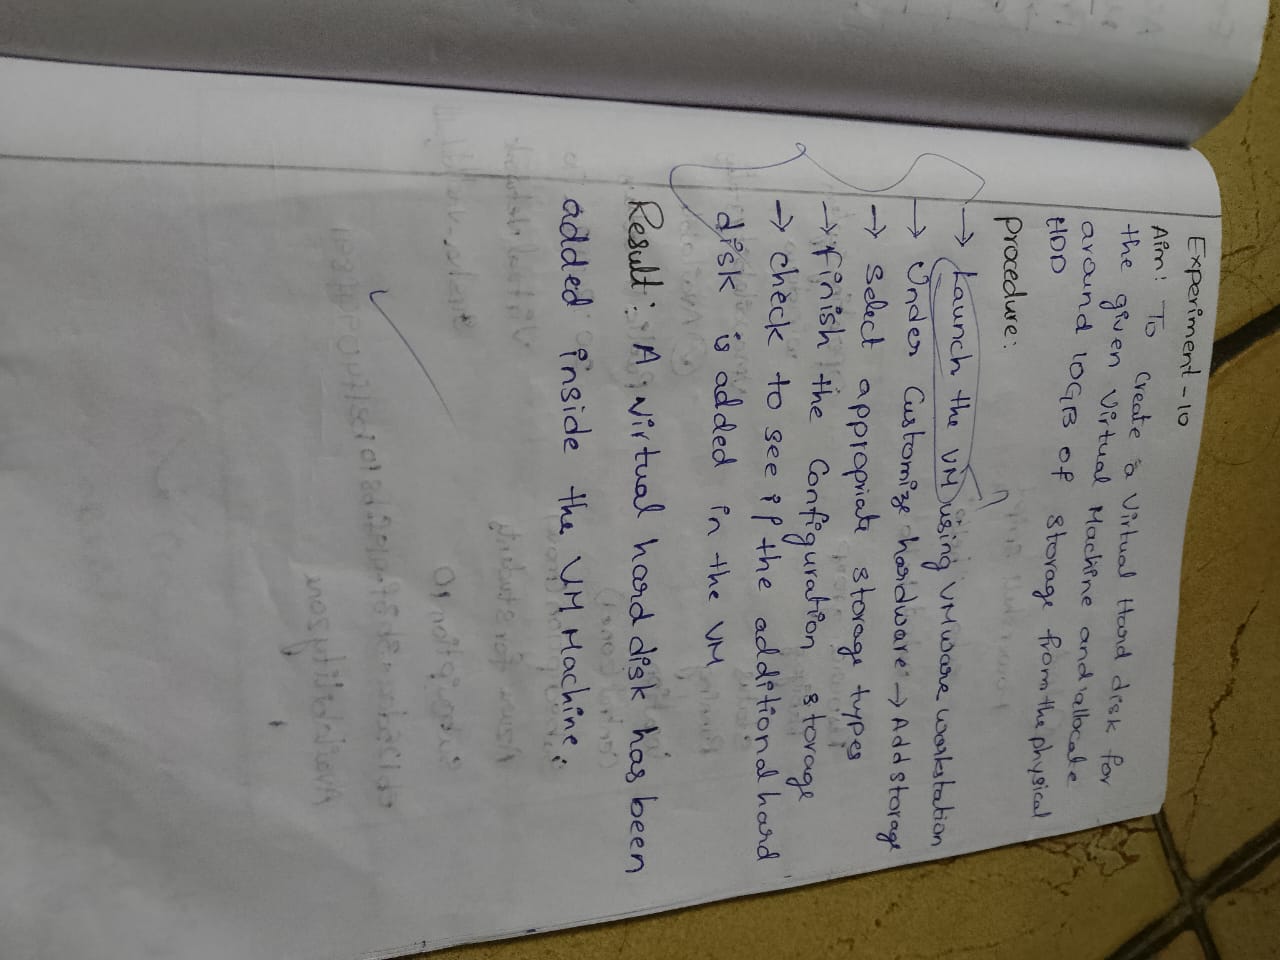 Experiment-10
Aim: To create a Virtual Hard disk for
the given Virtual Machine and allocate
around 10GB of storage from the physical
HDD
procedure:
→ Launch the VM using VMware workstation
→ Under Customize hardware → Add storage
→ Select appropriate storage types
→ finish the configuration storage
→ check to see if the additional hard
disk is added in the VM
Result: A Virtual hard disk has been
added inside the VM Machine.